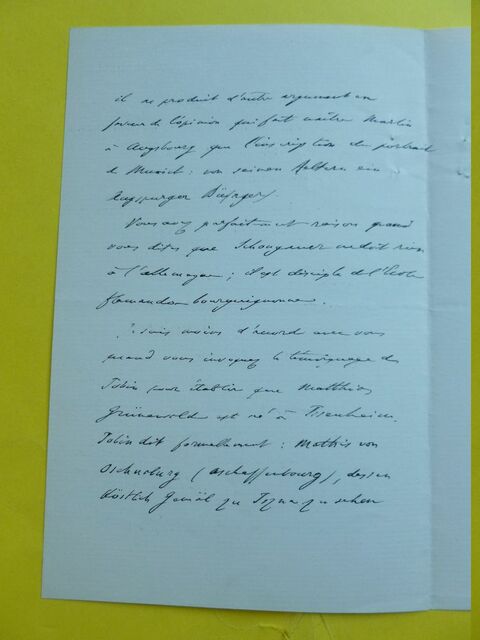 il ne produit d'autre argument en
faveur de l'opinion qui fait naître Martin
à Augsbourg que l'inscription du portrait
de Munich : von seinen Aeltern ein
Augspurger Bürger.
Vous avez parfaitement raison quand
vous dites que Schongauer ne doit rien
à l'allemagne ; il est disciple de l'École
flamando bourguignonne.
Je suis moins d'accord avec vous
quand vous invoquez le témoignage de
Jobin pour établir que Matthias
Grünewald est né à Issenheim.
Jobin dit formellement : Mathis von
Oschnaburg (Aschaffenbourg), dessen
köstlich Gemäl zu Isna zu sehen